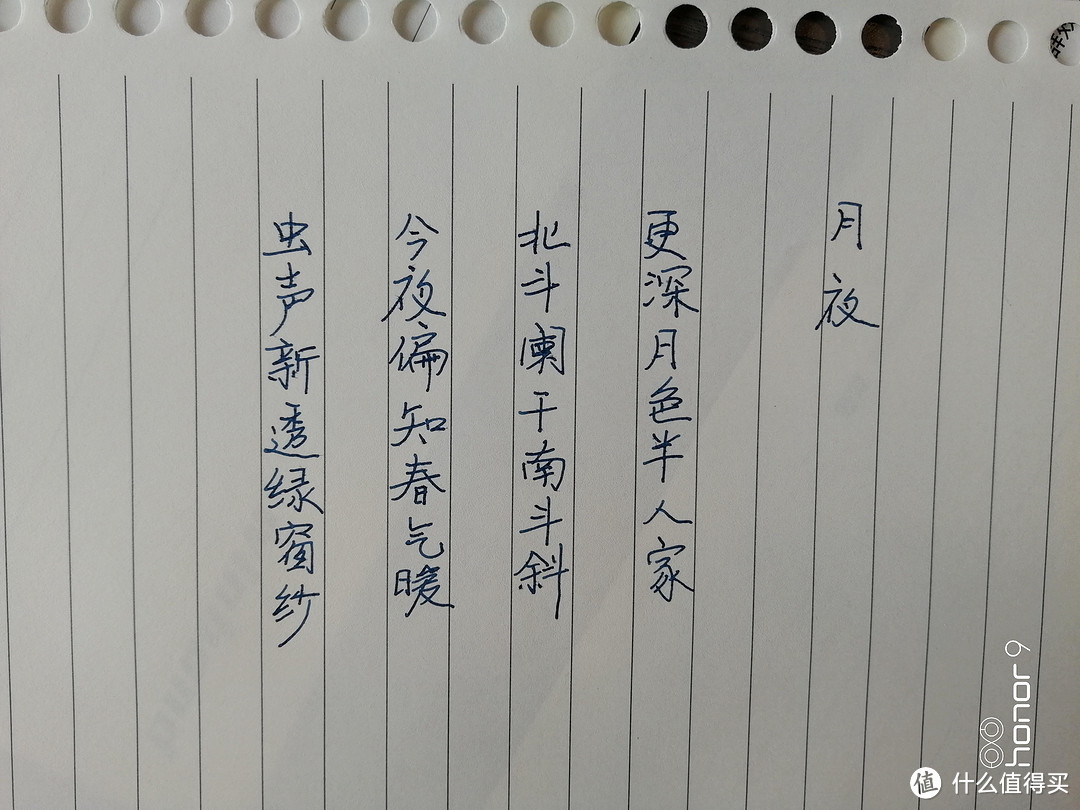 月夜
更深月色半人家
北斗阑干南斗斜
今夜偏知春气暖
虫声新透绿窗纱
honor 9
值 什么值得买